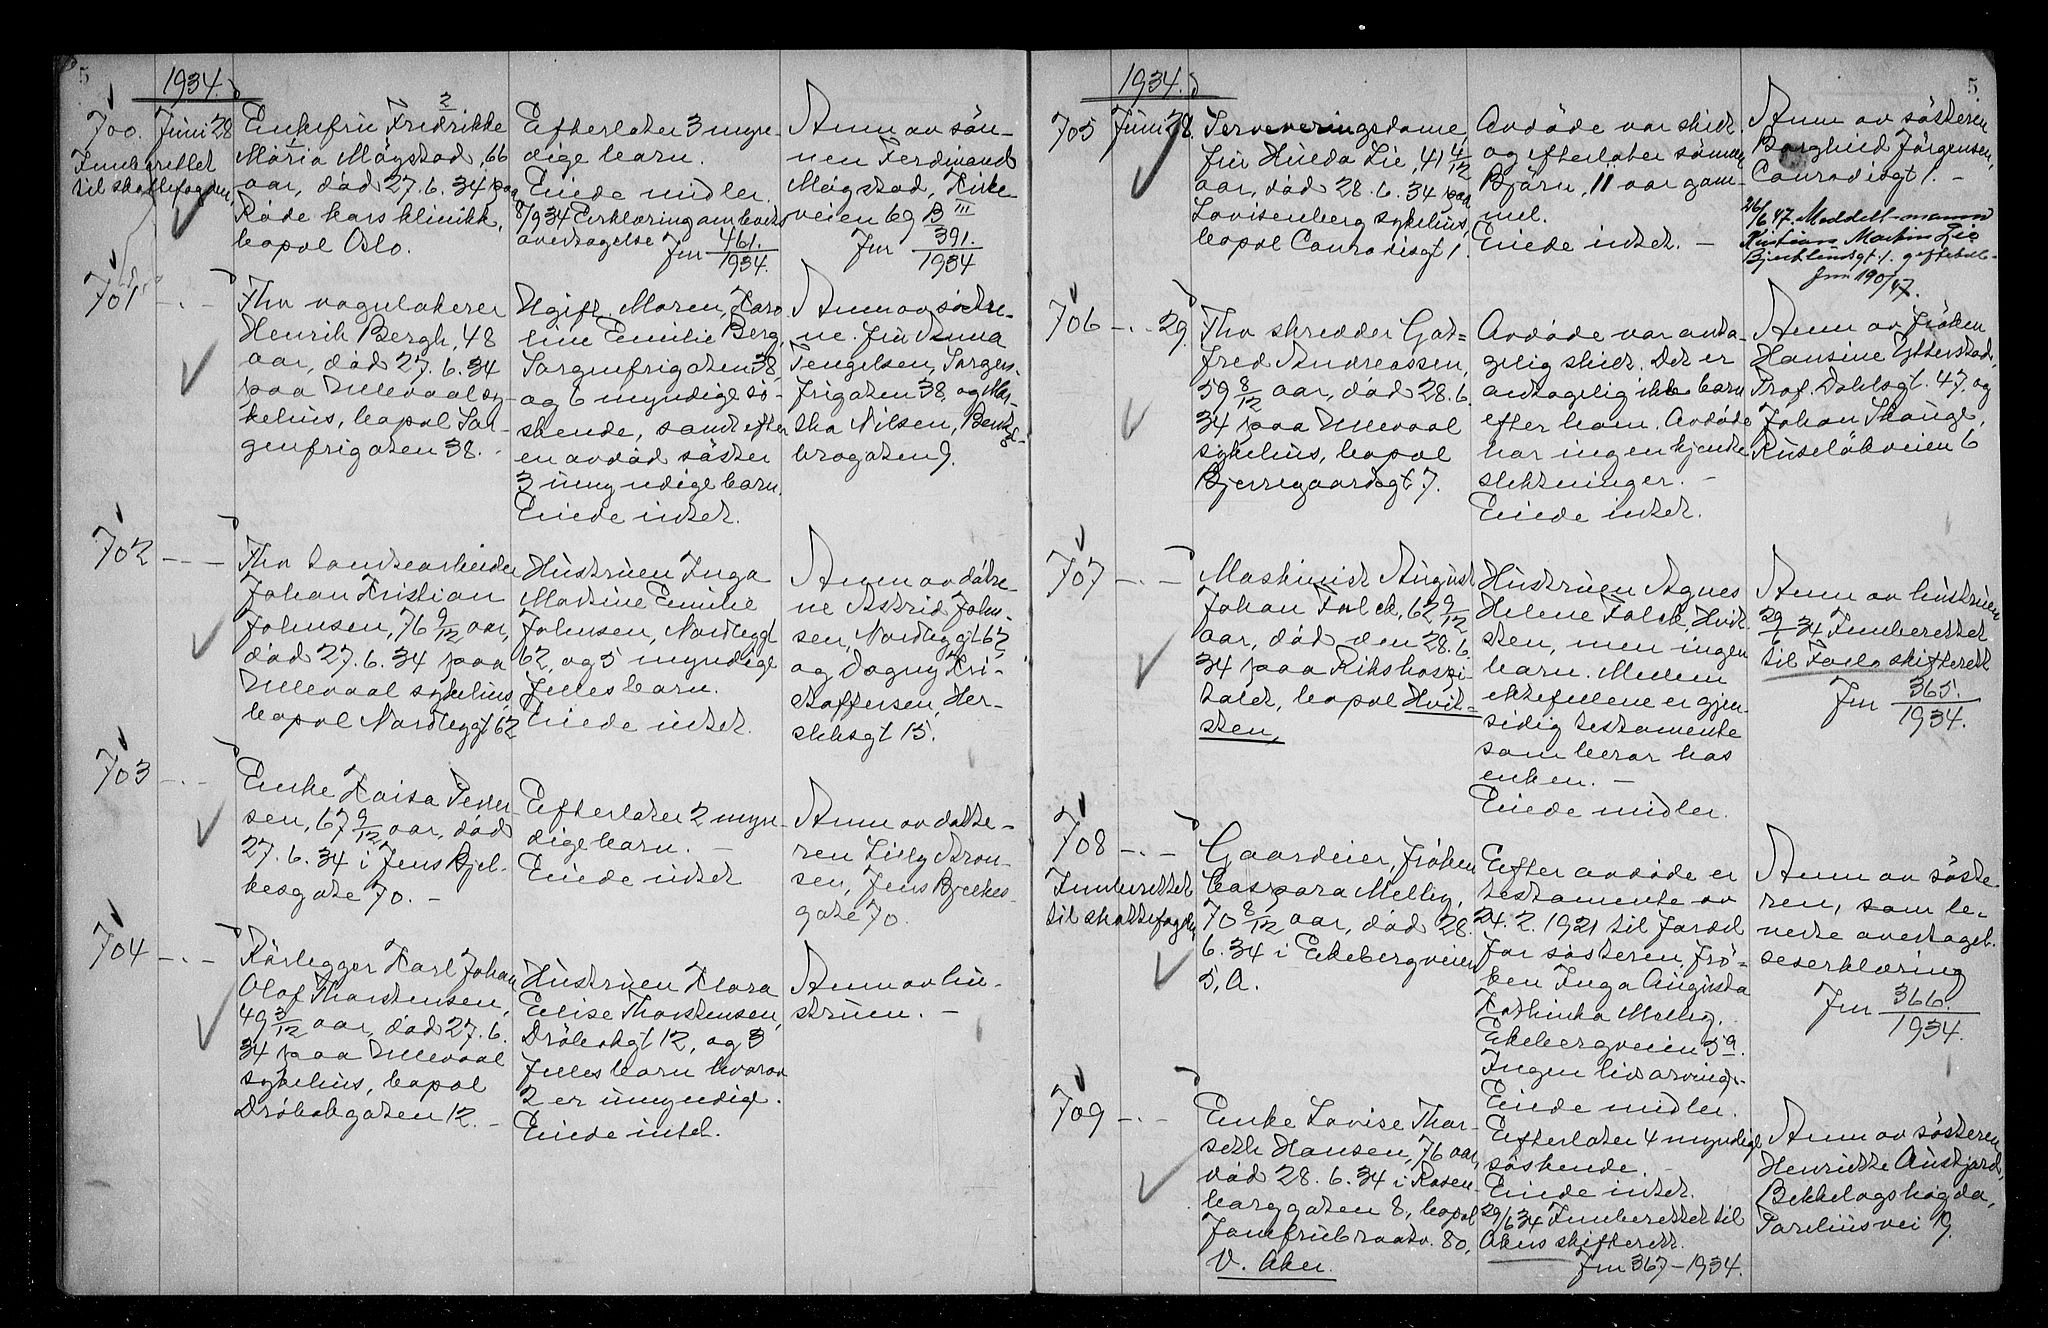 5
1934.
700. Juni 28
Innberettet
til skattefogden,
Enkefru Fredrikke
Maria Mögstad, 66
aar, död 27.6.34 paa
Röde kors klinikk,
bopæl Oslo.
Efterlater 3 myn-
dige barn.
Eiede midler.
8/9 34 Erklæring om boets
overtagelse Jnr 461./1934.
Anm av søn-
nen Ferdinand
Mögstad, Kirke
veien 69 B III
Jnr 391./1934
701 - . -
Fhv vognlakerer
Henrik Bergh, 48
aar, död 27.6.34
paa Ullevaal sy-
kehus, bopæl Sor-
genfrigaten 38. -
Ugift. Moren, Karo
line Emilie Berg,
Sorgenfrigaten 38,
og 6 myndige sö-
skende, samt efter
en avdöd söster
3 umyndige barn.
Eiede intet.
Anm av söstre-
ne. fru Anna
Tengelsen, Sorgen-
frigaten 38, og Mar-
tha Nilsen,
brogaten 9.
702 - - -
Fhv tomtearbeider
Johan Kristian
Johnsen, 76 9/12 aar,
död 27.6.34 paa
Ullevaal sykehus,
bopæl Nordbygt 62
Hustruen Inga
Martine Emilie
Johnsen, Nordbygt
62, og 5 myndige
felles barn.
Eiede intet.
Anm av dötre-
ne Astrid John-
sen, Nordbygt 62
og Dagny Kri-
stoffersen, Her-
slebsgt 15.
703 - . -
Enke Kaisa Peder
sen, 67 9/12 aar, död
27.6.34 i Jens Bjel-
kesgate 70. -
Efterlater 2 myn-
dige barn. -
Eiede intet
Anm av datte-
ren Lilly Aron-
sen, Jens Bjelkes-
gate 70.
704 - . -
Rörlegger Karl Johan
Olaf Thorstensen,
49 3/12 aar, död 27.6.
34 paa Ullevaal
sykehus, bopæl
Dröbakgaten 12. -
Hustruen Klara
Elise Thorstensen,
Dröbakgt 12, og 3
felles barn hvorav
2 er umyndige.
Eiede intet.
Anm av hu-
struen. -
5.
1934.
705 Juni 28.
Serveringsdame
fru Hulda Lie, 41 4/12
aar, död 28.6.34 paa
Lovisenberg sykehus,
bopæl Conradisgt 1.
Avdöde var skilt
og efterlater sönnen
Björn, 11 aar gam-
mel.
Eiede intet. -
Anm av søsteren
Borghild Jörgensen,
Conradisgt 1. -
26/6 47. Meddelt mannen
Kristian Martin Lie
giftebol-
Jnr 190/47.
706 - . - 29.
Fhv skredder Got-
fred Andreassen,
59 8/12 aar, död 28.6.
34 paa Ullevaal
sykehus, bopæl
Bjerregaardsgt 7.
Avdöde var anta-
gelig skilt. Det er
antagelig ikke barn
efter ham. Avdöde
har ingen kjente
slektninger. -
Eiede intet.
Anm av fröken
Hansine Ytterstad,
Prof. Dahlsgt. 47. og
Johan Skauge,
Ruselökveien 6
707 - . -
Maskinist August
Johan Falck, 62 9/12
aar, död den 28.6.
34 paa Rikshospi-
talet, bopæl Hvit-
sten,
Hustruen Agnes
Helene Falck, Hvit
sten, men ingen
barn. Mellem
ektefellene er gjen-
sidig testamente
som beror hos
enken. -
Eiede midler.
Anm av hustruen
29/6 34 Innberettet
til Follo skifterett
Jnr 365./1934.
708 - . -
Innberettet
til skattefogden
Gaardeier, fröken
Caspara Melley,
70 8/12 aar, död 28.
6.34 i Ekebergveien
5, A.
Efter avdöde er
testamente av
24.2.1921 til fordel
for søsteren frö-
ken Inga Augusta
Kathinka Melley,
Ekebergveien 5 a.
Ingen livsarving. -
Eiede midler.
Anm av söste-
ren, som le-
verte overtagel-
seserklæring
Jnr 366./1934.
709 - . -
Enke Lovise Thor-
seth Hansen, 76 aar,
död 28.6.34 i Rosen-
borggaten 8, bopæl
Jomfrubraatv. 80,
V. Aker.
Efterlater 4 myndige
söskende. -
Eiede intet.
29/6 34 Innberettet til
Akers skifterett.
Jnr 367-1934.
Anm av søsteren
Henriette Austjord,
Bekkelagshögda,
Pareliusvei 19.